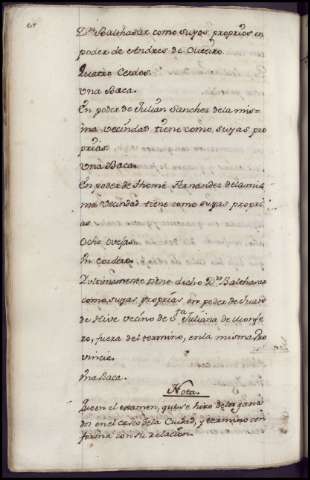 Dn. Balthasar como suyos proprios en
poder de Andres de Outeiro.
Quatro Cerdos.
Una Baca.
En poder de Julian Sanchez de la mis-
ma vecindad tiene como suyas pro
prias.
Una Baca.
En poder de Thome Fernandez de la mis
ma Vecindad tiene como suyas propri
as.
Ocho ovejas.
Un Cordero.
Ultimamente tiene dicho Dn. Balthasar
como suyas proprias en poder de Juan
de vecino de Sta. Juliana de
fuera del termino, en la misma Pro
vincia.
Una Baca.
Nota.
Que en el examen, que se hizo de los gana
dos en el casco de la Ciudad, y termino con
forma con su relacion.